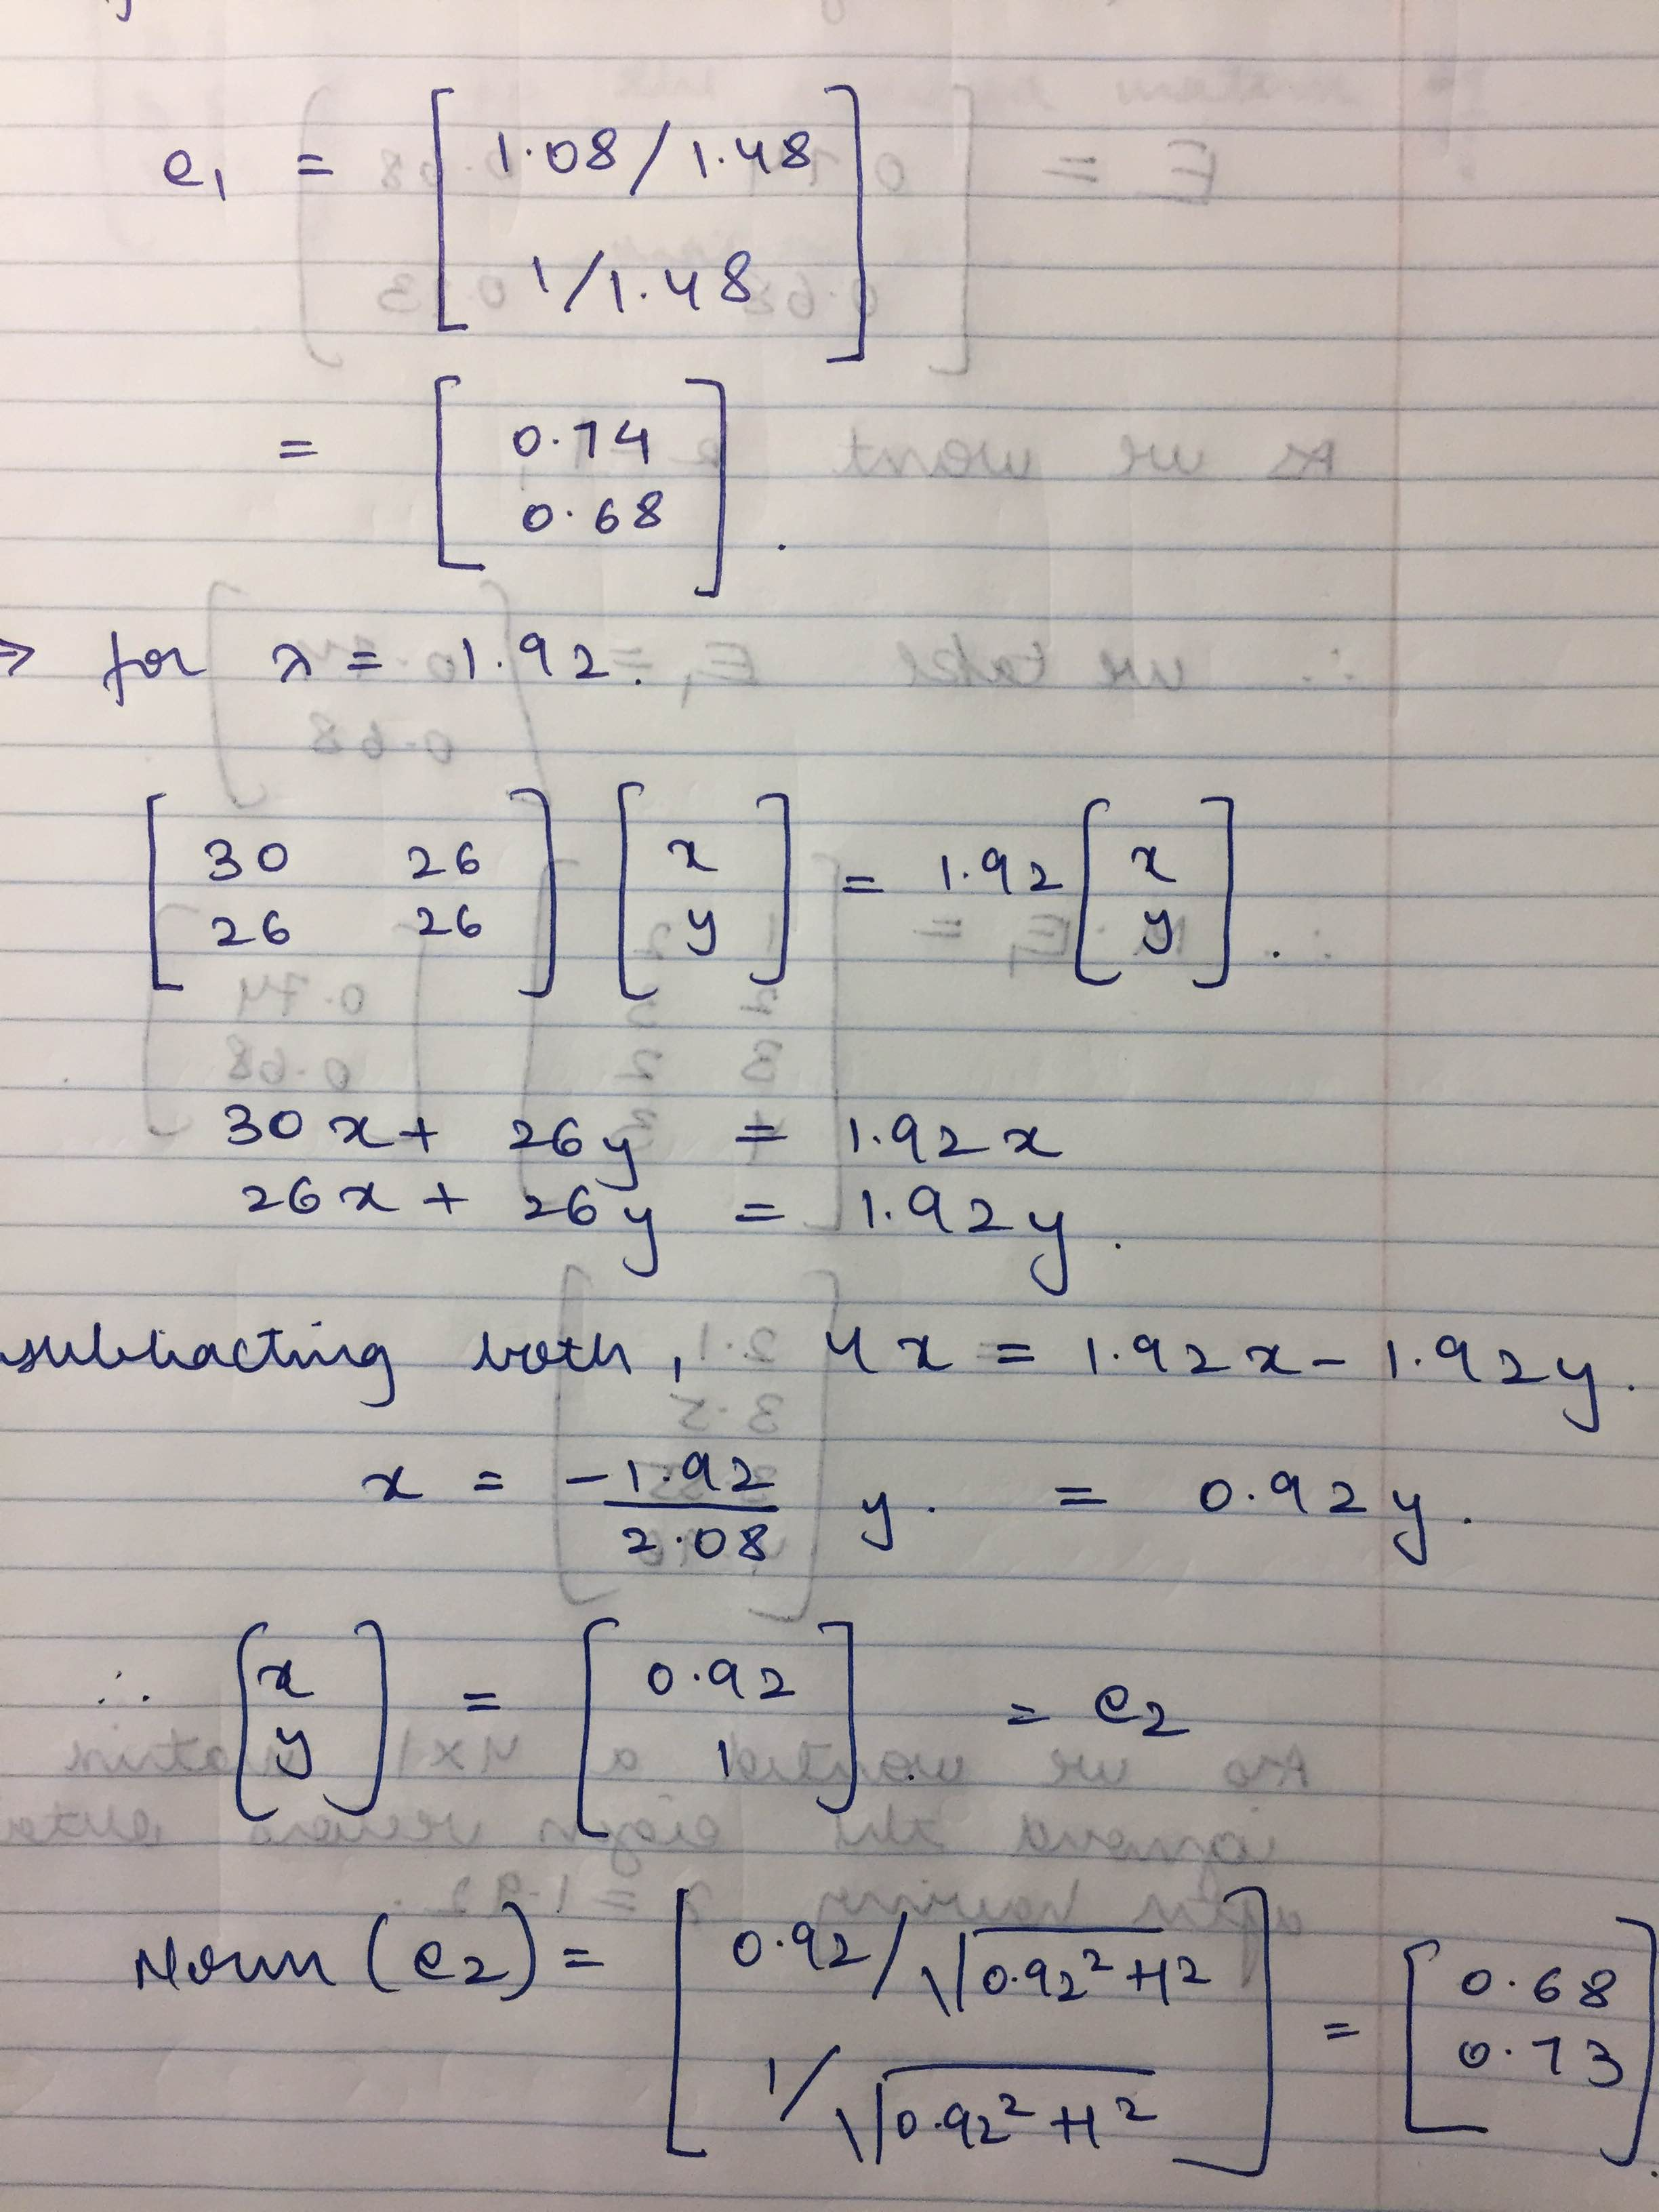 e₁ = [ 1.08/1.48
1/1.48 ]
= [ 0.74
0.68 ] .
⇒ for λ = 1.92.
[ 30 26
26 26 ] [ x
y ] = 1.92 [ x
y ] .
30x + 26y = 1.92x
26x + 26y = 1.92y.
subtracting both, 4x = 1.92x - 1.92y.
x = -1.92/2.08 y. = 0.92y.
∴ [ x
y ] = [ 0.92
1 ] . = e₂
Norm (e₂) = [ 0.92/√0.92²+1²
1/√0.92²+1² ] = [ 0.68
0.73 ] .